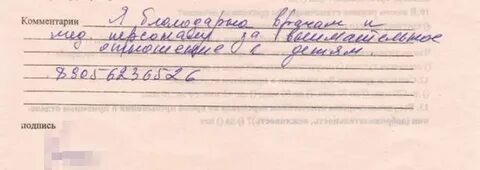 Комментарии Я благодарна врачам и
мед персоналу за внимательное
отношение к детям.
89056236526
подпись